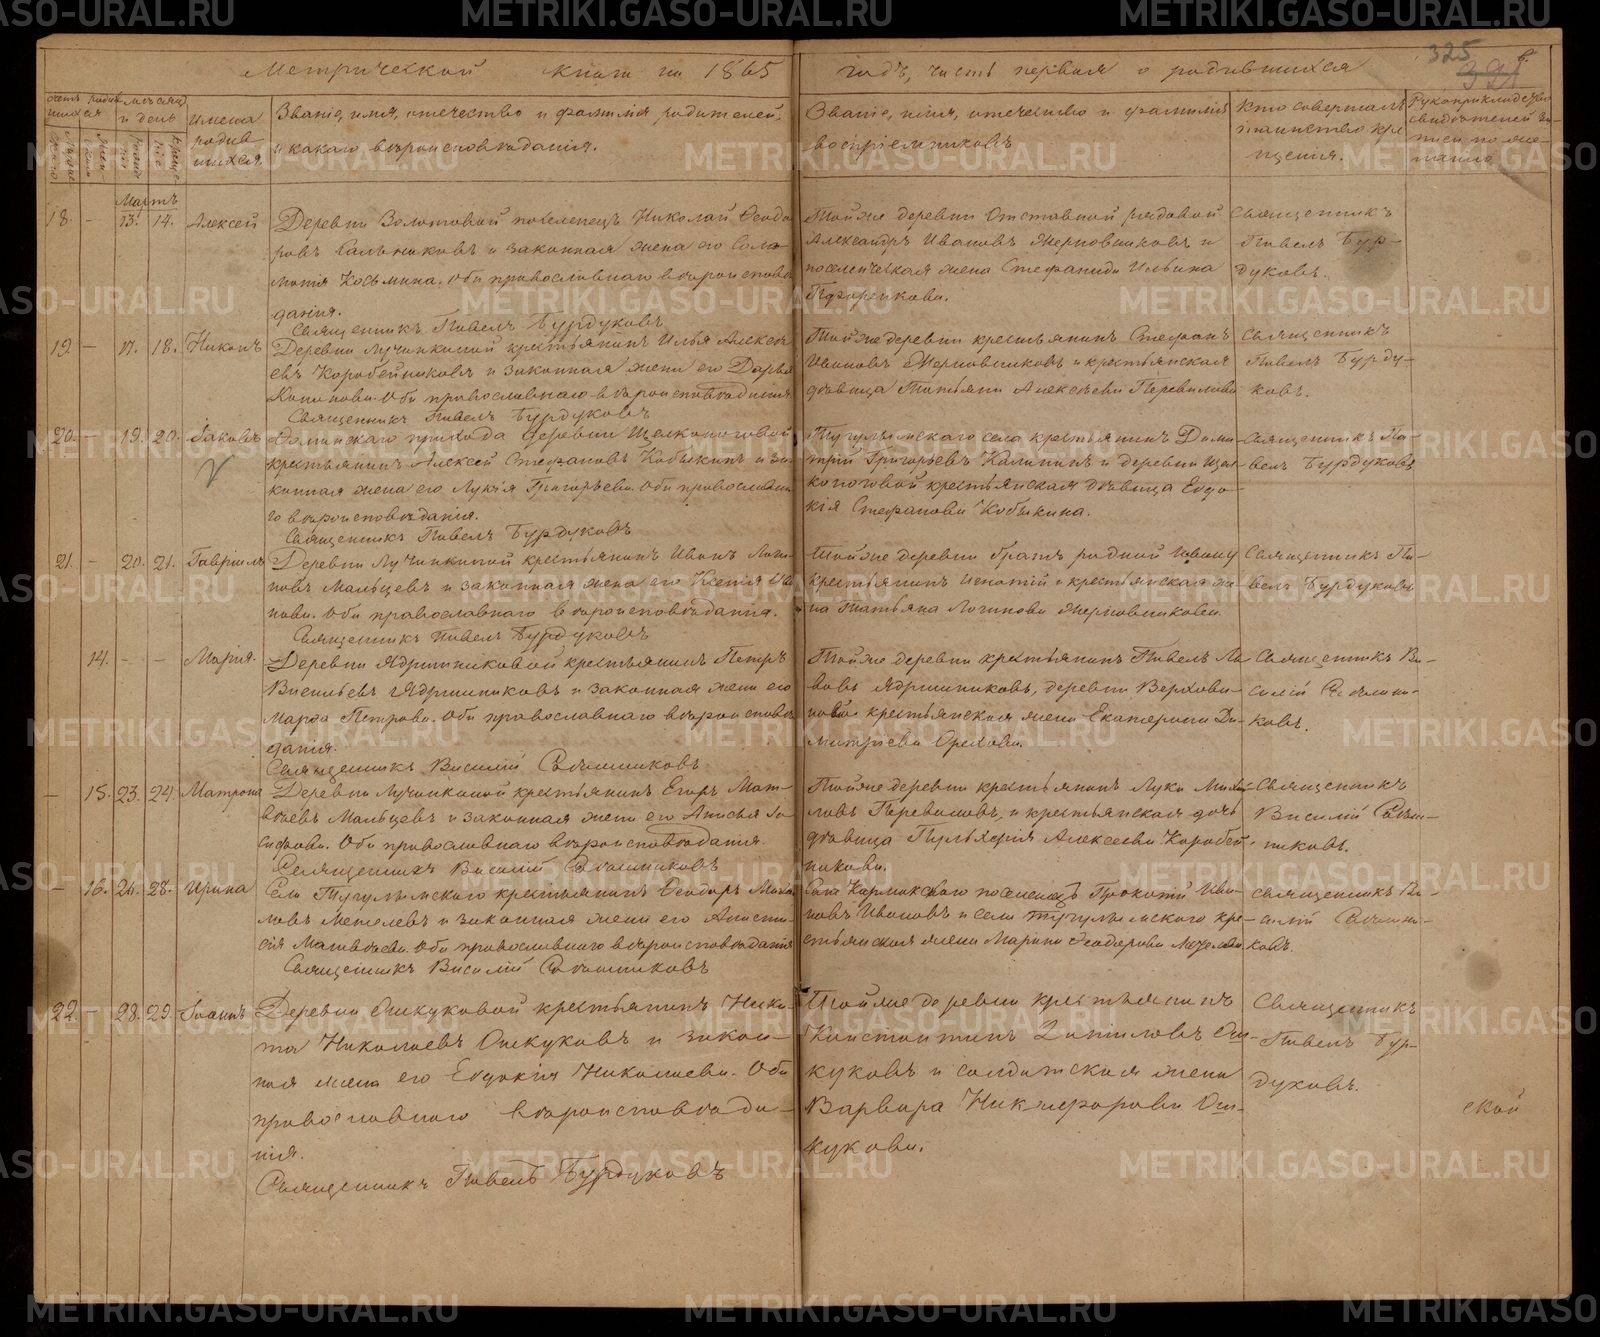 325
391
Метрической книги на 1865 годъ, часть первая о родившихся
Имена родившихся.
Званіе, имя, отечество и фамилія родителей,
и какаго вѣроисповѣданія.
Званіе, имя, отечество и фамилія
воспріемниковъ
Кто совершалъ
таинство кре
щенія.
Рукоприкладство
свидѣтелей за-
писи по же-
ланію
Мартъ
18. - 13. 14. Алексей
Деревни Золотовой поселенецъ Николай Ѳеодо
ровъ Сальниковъ и законная жена его Соло-
монія Козьмина. Оба православнаго вѣроисповѣ
данія.
Священникъ Павелъ Бурдуковъ
Тойже деревни отставной рядовой
Александръ Ивановъ Жерновниковъ и
поселенческая жена Стефанида Ильина
Священникъ
Павелъ Бур-
дуковъ.
19. - 17. 18. Никонъ
Деревни Лучинкиной крестьянинъ Илья Алексе
евъ Коробейниковъ и законная жена его Дарья
Кононова. Оба православнаго вѣроисповѣданія
Священникъ Павелъ Бурдуковъ
Тойже деревни крестьянинъ Стефанъ
Ивановъ Жерновниковъ и крестьянская
дѣвица Татьяна Алексѣева Перевалова
Священникъ
Павелъ Бурду-
ковъ.
20. - 19. 20. Іаковъ
прихода деревни Щелконоговой
крестьянинъ Алексей Стефановъ Кобыкинъ и за-
конная жена его Лукія Григорьева. Оба православна
го вѣроисповѣданія.
Священникъ Павелъ Бурдуковъ
Тугулымскаго села крестьянинъ Дими
трій Григорьевъ Калининъ и деревни Щел-
коноговой крестьянская дѣвица Евдо-
кія Стефанова Кобыкина.
Священникъ Па-
велъ Бурдуковъ
21. - 20. 21. Гавріилъ
Деревни Лучинкиной крестьянинъ Иванъ Логи-
новъ Мальцевъ и законная жена его Ксенія Ива
нова. Оба православнаго вѣроисповѣданія.
Священникъ Павелъ Бурдуковъ
Тойже деревни братъ родной Ивану
крестьянинъ Игнатій и крестьянская же
на Татьяна Логинова Жерновникова
Священникъ Па-
велъ Бурдуковъ
14. - - Марія.
Деревни Ядрышниковой крестьянинъ Петръ
Васильевъ Ядрышниковъ и законная жена его
Марѳа Петрова. Оба православнаго вѣроисповѣ
данія.
Священникъ Василій
Тойже деревни крестьянинъ Павелъ
Ядрышниковъ, деревни
крестьянская жена Екатерина Ди-
митріева Орехова.
Священникъ Ва-
силій
ковъ.
- 15. 23. 24. Матрона
Деревни Лучинкиной крестьянинъ Егоръ Мат-
вѣевъ Мальцевъ и законная жена его Анисья Іо-
сифова. Оба православнаго вѣроисповѣданія.
Священникъ Василій
Тойже деревни крестьянинъ Лука Михаи-
ловъ Переваловъ, и крестьянская дочь
дѣвица Пульхерія Алексеева Коробей
никова.
Священникъ
Василій
никовъ.
- 16. 26. 28. Ирина
Села Тугулымскаго крестьянинъ Ѳеодоръ Михаи
ловъ Метелевъ и законная жена его Анаста-
сія Матвѣева. Оба православнаго вѣроисповѣданія
Священникъ Василій
Села Кармакскаго поселенецъ Прокопій Ива-
новъ Ивановъ и села Тугулымскаго кре-
стьянская жена Марина Ѳеодорова
Священникъ Ва-
силій
ковъ.
22. - 28. 29. Іоаннъ
Деревни Ошкуковой крестьянинъ Ники-
та Николаевъ Ошкуковъ и закон-
ная жена его Евдокія Николаева. Оба
православнаго вѣроисповѣда-
нія.
Священникъ Павелъ Бурдуковъ
Тойже деревни крестьянинъ
Константинъ Даниловъ Ош-
куковъ и солдатская жена
Варвара Никифорова Ош-
кукова.
Священникъ
Павелъ Бур-
дуковъ.
ской
METRIKI.GASO-URAL.RU